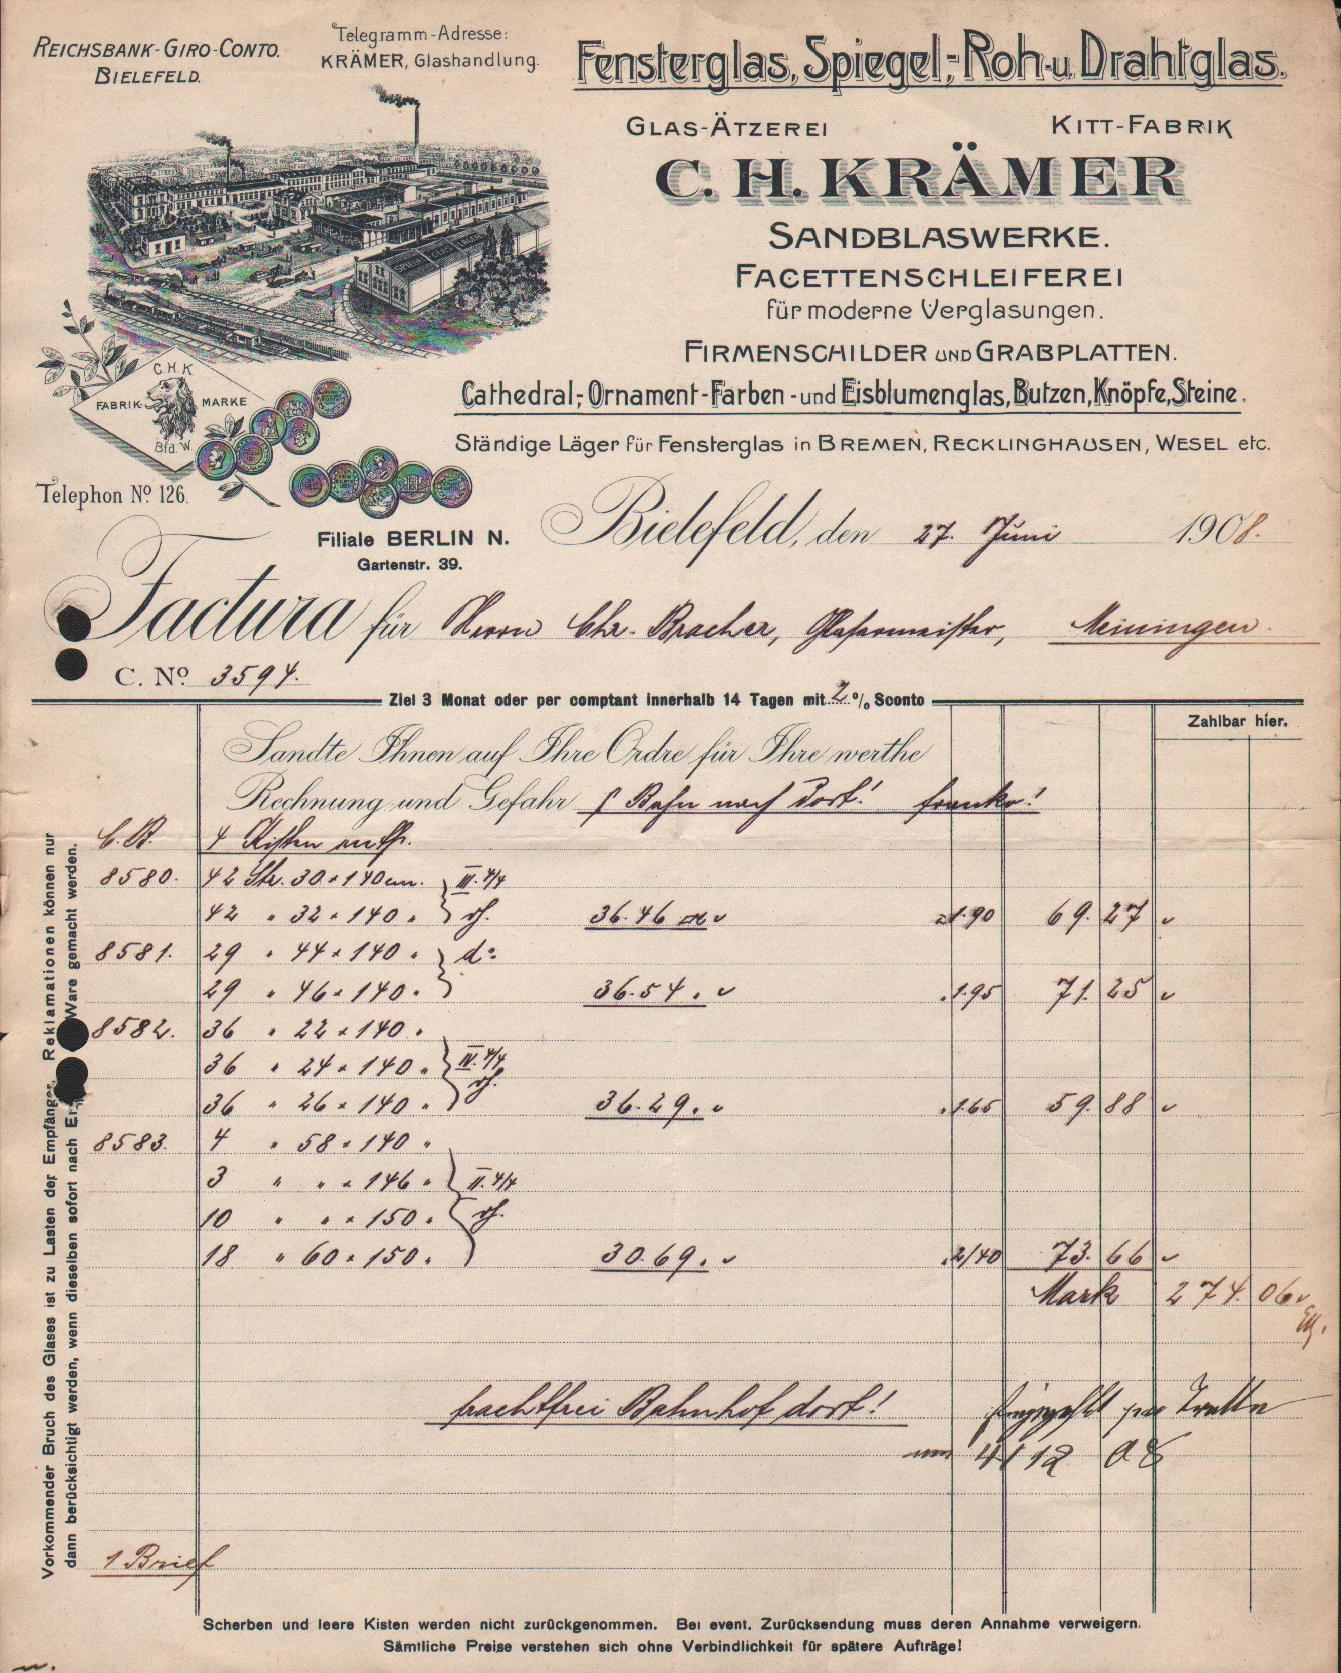 REICHSBANK-GIRO-CONTO.
BIELEFELD.
Telegramm-Adresse:
KRÄMER, Glashandlung.
Fensterglas, Spiegel-, Roh- u. Drahtglas.
GLAS-ÄTZEREI KITT-FABRIK
C. H. KRÄMER
SANDBLASWERKE.
FACETTENSCHLEIFEREI
für moderne Verglasungen.
FIRMENSCHILDER UND GRABPLATTEN.
Cathedral-, Ornament-Farben- und Eisblumenglas, Butzen, Knöpfe, Steine.
Ständige Läger für Fensterglas in BREMEN, RECKLINGHAUSEN, WESEL etc.
C. H. K
FABRIK MARKE
Bfd. W.
Telephon No. 126.
Filiale BERLIN N.
Gartenstr. 39.
Bielefeld, den 27. Juni 1908.
Factura für Herrn Chr. Bracher, Glasermeister, Meiningen.
C. No. 3594.
Ziel 3 Monat oder per comptant innerhalb 14 Tagen mit 2 % Sconto
Zahlbar hier.
Sandte Ihnen auf Ihre Ordre für Ihre werthe
Rechnung und Gefahr p Bahn nach dort! franko!
C. K. 4 Kisten enth.
8580. 42 Str. 30 × 140 cm. III. 4/4
42 " 32 × 140 " 36.46 1.90 69.27
8581. 29 " 44 × 140 " do
29 " 46 × 140 " 36.54 " 1.95 71.25
8582. 36 " 22 × 140 "
36 " 24 × 140 " IV. 4/4
36 " 26 × 140 " 36.29 " 1.65 59.88
8583. 4 " 58 × 140 "
3 " " × 146 " II. 4/4
10 " " × 150 "
18 " 60 × 150 " 30.69 " 2/40 73.66
Mark 274.06
frachtfrei Bahnhof dort!
per Tratte
4/12 08
1 Brief
Vorkommender Bruch des Glases ist zu Lasten der Empfänger. Reklamationen können nur
dann berücksichtigt werden, wenn dieselben sofort nach Ware gemacht werden.
Scherben und leere Kisten werden nicht zurückgenommen. Bei event. Zurücksendung muss deren Annahme verweigern.
Sämtliche Preise verstehen sich ohne Verbindlichkeit für spätere Aufträge!